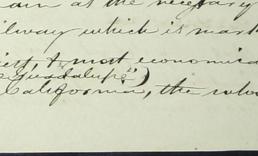 at the necessary
ilway which is mark
iest, & most economica
e Guadalupe)
California, the whol